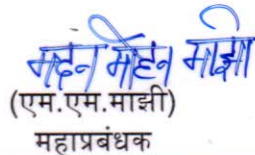 मदन मोहन माझी
(एम.एम.माझी)
महाप्रबंधक